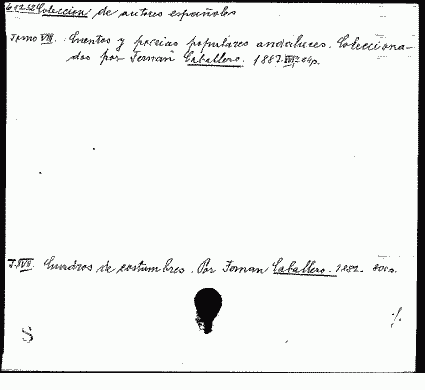 Coleccion de autores españoles
Tomo VIII. Cuentos y poesias populares andaluces. Colecciona-
dos por Fernan Caballero. 1887.
T. XVII. Cuadros de costumbres. Por Fernan Caballero. 1882.
·/.
S